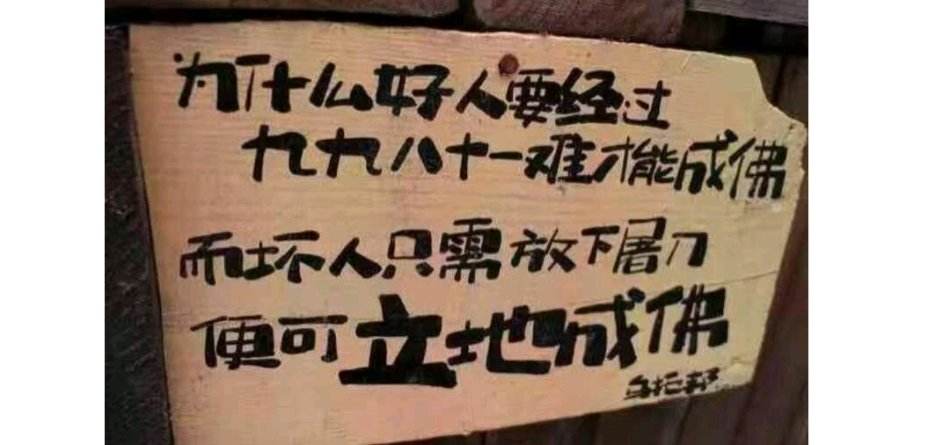 为什么好人要经过
九九八十一难才能成佛
而坏人只需放下屠刀
便可立地成佛
乌托邦